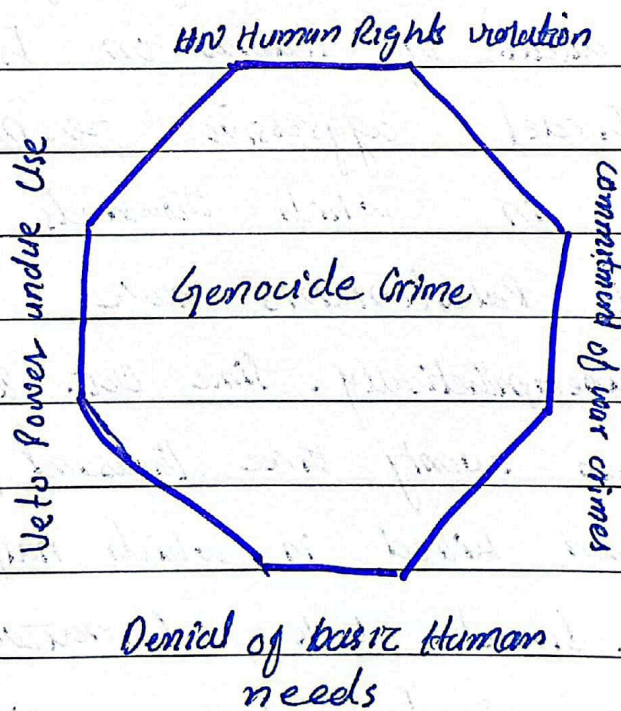 Human Rights violation
Veto Power undue Use
Genocide Crime
of war crimes
Denial of basic Human.
needs